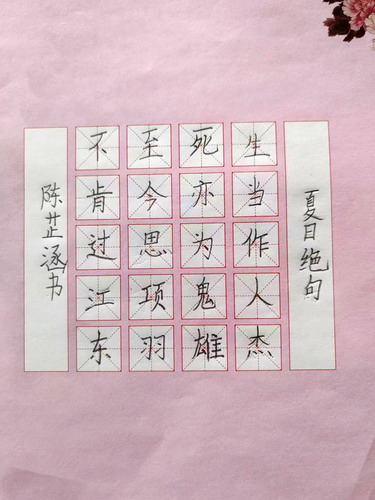 夏日绝句
生当作人杰
死亦为鬼雄
至今思项羽
不肯过江东
陈芷涵书